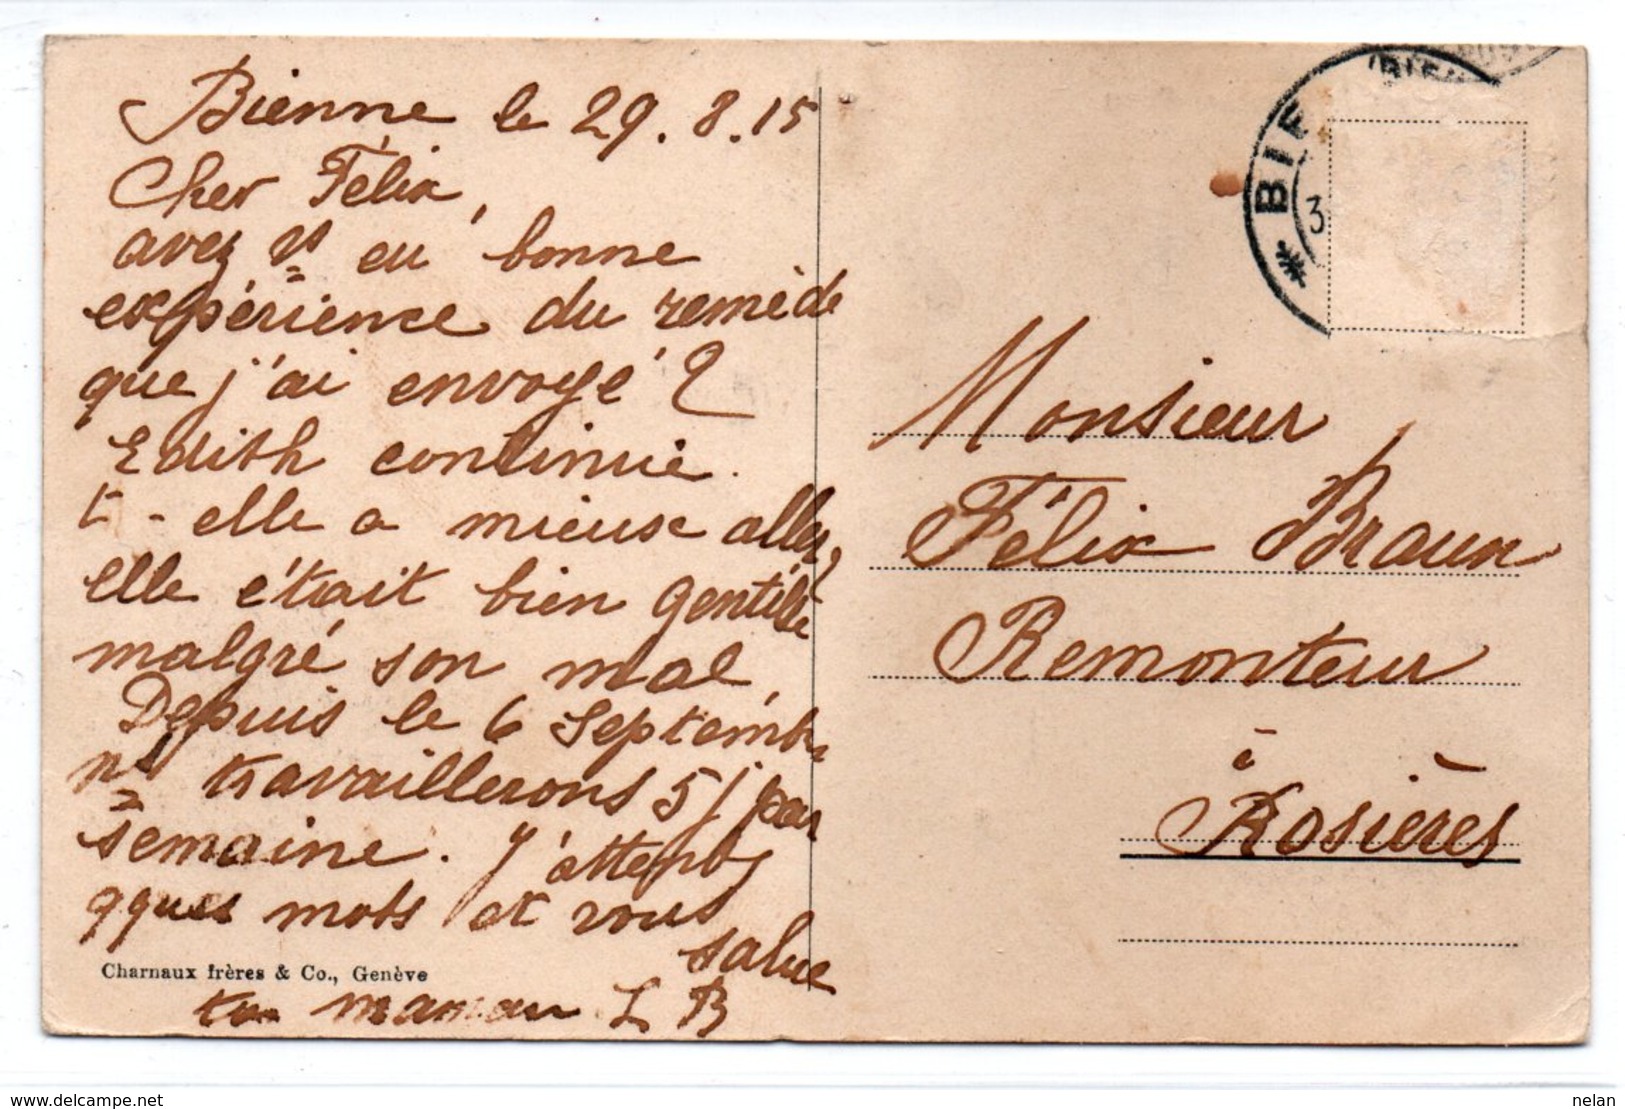 Bienne le 29.8.15
Cher Félix,
avez vs eu bonne
expérience du remède
que j'ai envoyé?
Edith continue.
t-elle a mieux aller,
elle était bien gentille
malgré son mal,
Depuis le 6 Septembre
ns travaillerons 5 j par
semaine. J'attends
qques mots et vous
salue
ta maman L B
Charnaux frères & Co., Genève
BIE
3
Monsieur
Félix Braun
Remonteur
à
Rosières
delcampe.net
nelan